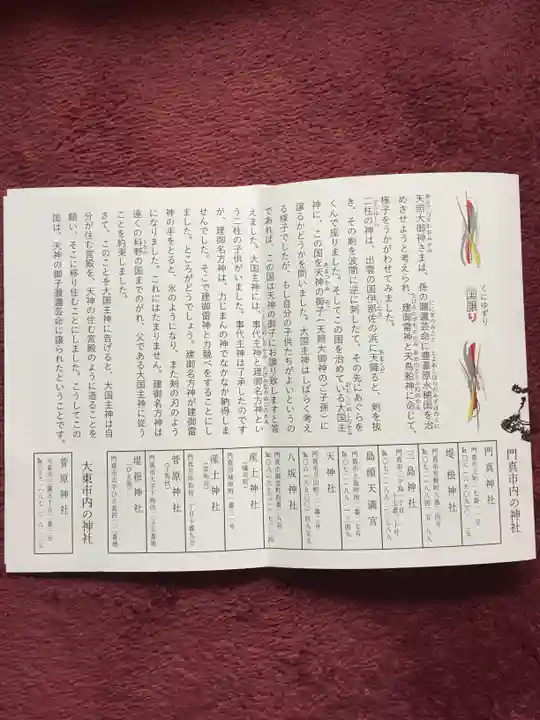 くにゆずり
国譲り
天照大御神さまは、孫の邇邇芸命に豊葦原水穂国を治
めさせようと考えられ、建御雷神と天鳥船神に命じて、
様子をうかがわせてみました。
二柱の神は、出雲の国伊那佐の浜に天降ると、剣を抜
き、その剣を波間に逆に刺したて、その先にあぐらを
くんで座りました。そしてこの国を治めている大国主
神に、この国を天神の御子(天照大御神のご子孫)に
譲るかどうかを問いました。大国主神はしばらく考え
る様子でしたが、もし自分の子供たちがよいというの
であれば、この国は天神の御子にお譲り致しますと答
えました。大国主神には、事代主神と建御名方神とい
う二柱の子供がいました。事代主神は了承したのです
が、建御名方神は、力じまんの神でなかなか納得しま
せんでした。そこで建御雷神と力競べをすることにし
ました。ところがどうでしょう。建御名方神が建御雷
神の手をとると、氷のようになり、また剣の刃のよう
になりました。これにはたまりません。建御名方神は
遠くの科野の国までのがれ、父である大国主神に従う
ことを約束しました。
さて、このことを大国主神に告げると、大国主神は自
分が住む宮殿を、天神の住む宮殿のように造ることを
願い、そこに移り住むことにしました。こうしてこの
国は、天神の御子邇邇芸命に譲られたということです。
門真市内の神社
門真神社
堤根神社
三島神社
島頭天満宮
天神社
八坂神社
産土神社
産土神社
菅原神社
堤根神社
大東市内の神社
菅原神社